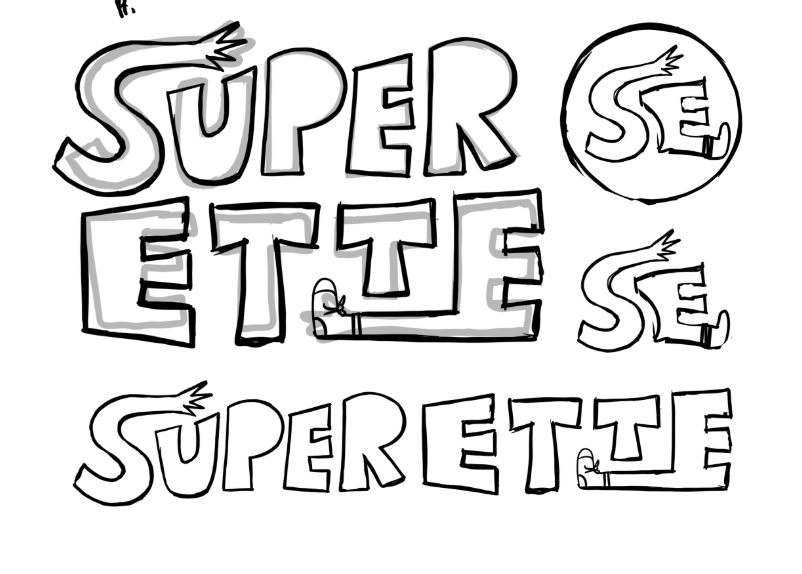 SUPER
ETTE
SE
SE
SUPERETTE